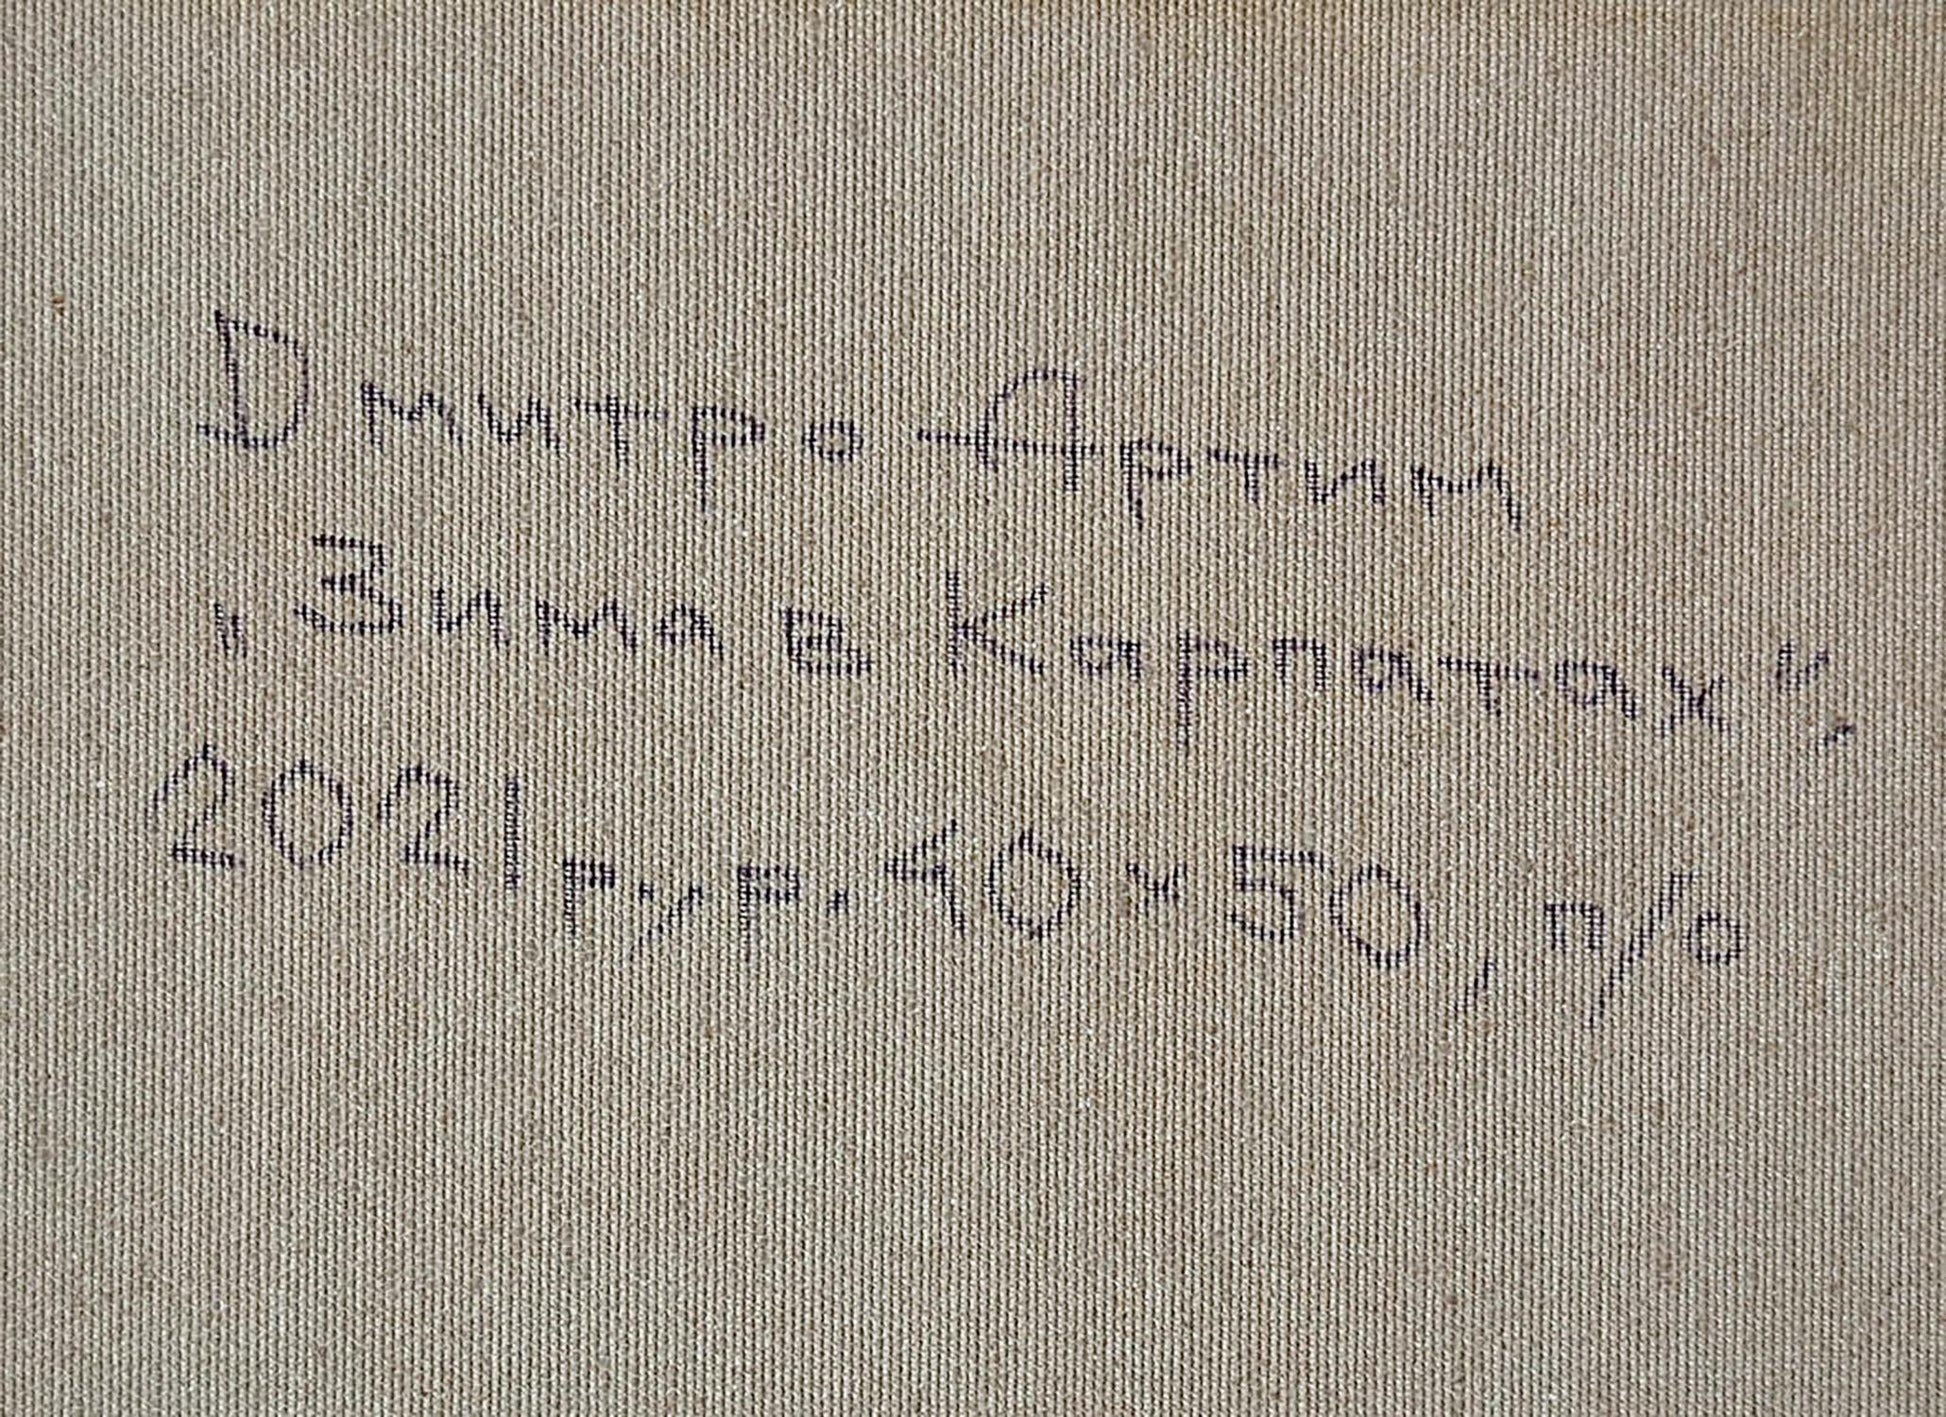 Дмитро Артим
„Зима в Карпатах“,
2021 г.ур. 40 х 50, п/о